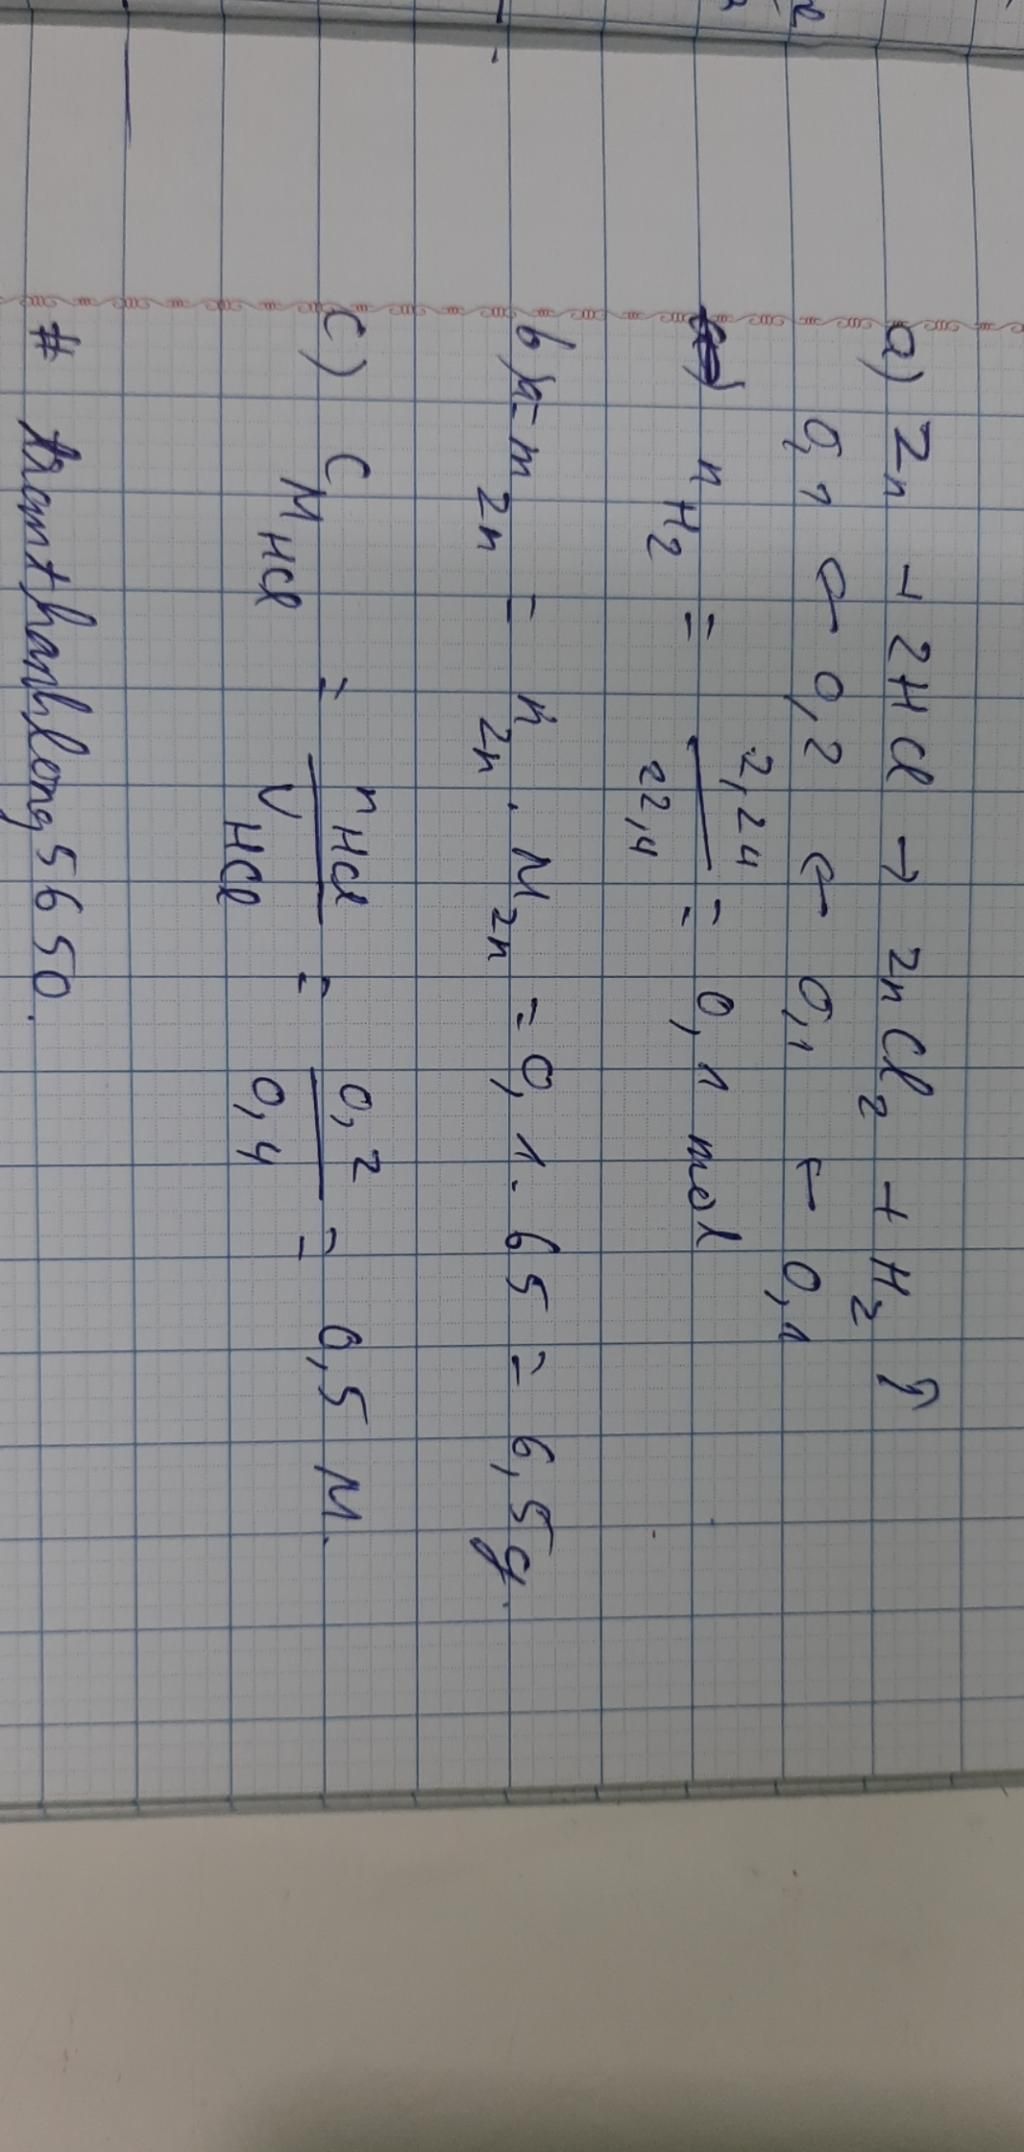 a) Zn + 2HCl → ZnCl2 + H2 ↑
0,1 ← 0,2 ← 0,1 ← 0,1
nH2 = 2,24/22,4 = 0,1 mol
b) a = mZn = nZn . MZn = 0,1 . 65 = 6,5g.
c) CM HCl = nHCl/VHCl = 0,2/0,4 = 0,5 M.
# tramthanhlong5650.